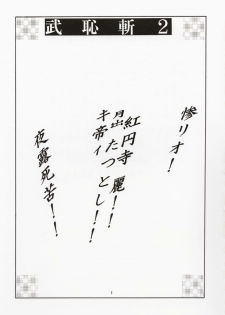 武恥斬2
惨リオ！
紅円寺 麗！！
昆虫たつとし！！
キ帝イ
夜露死苦！！
1